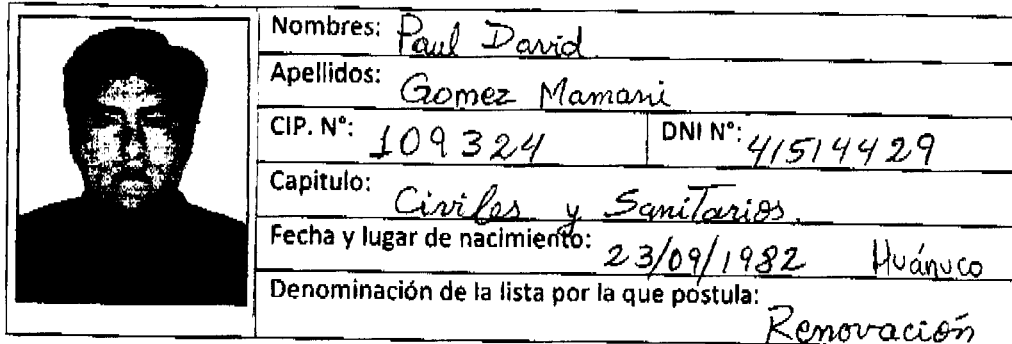 Nombres: Paul David
Apellidos: Gomez Mamani
CIP. N°: 109324 DNI N°: 41514429
Capitulo: Civiles y Sanitarios.
Fecha y lugar de nacimiento: 23/09/1982 Huánuco
Denominación de la lista por la que postula:
Renovación